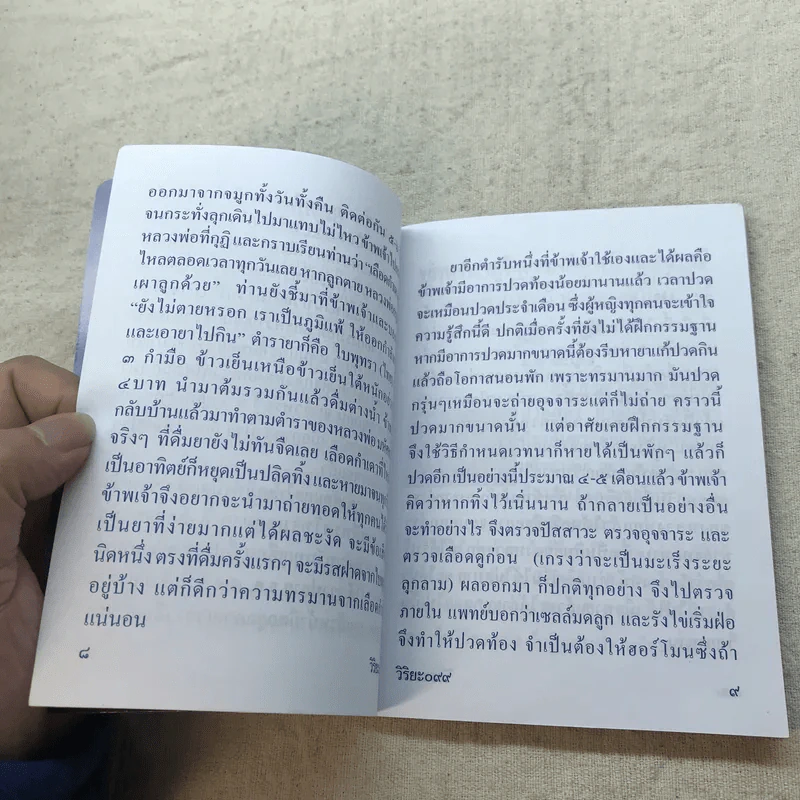 ออกมาจากจมูกทั้งวันทั้งคืน ติดต่อกัน ๕-
จนกระทั่งลุกเดินไปมาแทบไม่ไหว ข้าพเจ้าไป
หลวงพ่อที่กุฏิ และกราบเรียนท่านว่า “เลือด
ไหลตลอดเวลาทุกวันเลย หากลูกตาย หลวงพ่อ
เผาลูกด้วย” ท่านยังชี้มาที่ข้าพเจ้าและ
“ยังไม่ตายหรอก เราเป็นภูมิแพ้ ให้ออกกำลัง
และเอายาไปกิน” ตำรายาก็คือ ใบพุทรา
๓ กำมือ ข้าวเย็นเหนือข้าวเย็นใต้หนักอย่าง
๔ บาท นำมาต้มรวมกันแล้วดื่มต่างน้ำ
กลับบ้านแล้วมาทำตามตำราของหลวงพ่อ
จริงๆ ที่ดื่มยายังไม่ทันจืดเลย เลือดกำเดาที่
เป็นอาทิตย์ก็หยุดเป็นปลิดทิ้ง และหายมาจน
ข้าพเจ้าจึงอยากจะนำมาถ่ายทอดให้ทุกคน
เป็นยาที่ง่ายมากแต่ได้ผลชะงัด จะมีข้อ
นิดหนึ่ง ตรงที่ดื่มครั้งแรกๆ จะมีรสฝาดจาก
อยู่บ้าง แต่ก็ดีกว่าความทรมานจากเลือด
แน่นอน
๘
ยาอีกตำรับหนึ่งที่ข้าพเจ้าใช้เองและได้ผลคือ
ข้าพเจ้ามีอาการปวดท้องน้อยมานานแล้ว เวลาปวด
จะเหมือนปวดประจำเดือน ซึ่งผู้หญิงทุกคนจะเข้าใจ
ความรู้สึกนี้ดี ปกติเมื่อครั้งที่ยังไม่ได้ฝึกกรรมฐาน
หากมีอาการปวดมากขนาดนี้ต้องรีบหายาแก้ปวดกิน
แล้วถือโอกาสนอนพัก เพราะทรมานมาก มันปวด
กรุ่นๆเหมือนจะถ่ายอุจจาระแต่ก็ไม่ถ่าย คราวนี้
ปวดมากขนาดนั้น แต่อาศัยเคยฝึกกรรมฐาน
จึงใช้วิธีกำหนดเวทนาก็หายได้เป็นพักๆ แล้วก็
ปวดอีก เป็นอย่างนี้ประมาณ ๔-๕ เดือนแล้ว ข้าพเจ้า
คิดว่าหากทิ้งไว้เนิ่นนาน ถ้ากลายเป็นอย่างอื่น
จะทำอย่างไร จึงตรวจปัสสาวะ ตรวจอุจจาระ และ
ตรวจเลือดดูก่อน (เกรงว่าจะเป็นมะเร็งระยะ
ลุกลาม) ผลออกมา ก็ปกติทุกอย่าง จึงไปตรวจ
ภายใน แพทย์บอกว่าเซลล์มดลูก และรังไข่เริ่มฝ่อ
จึงทำให้ปวดท้อง จำเป็นต้องให้ฮอร์โมนซึ่งถ้า
วิริยะ๐๙๙
๙